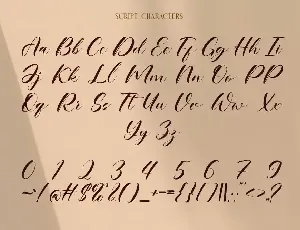 SCRIPT CHARACTERS
Aa Bb Cc Dd Ee Ff Gg Hh Ii
Jj Kk Ll Mm Nn Oo PP
Qq Rr Ss Tt Uu Vv Ww Xx
Yy Zz
0 1 2 3 4 5 6 7 9
~!@#$%^&()_+-={}[]|\:;"<>?